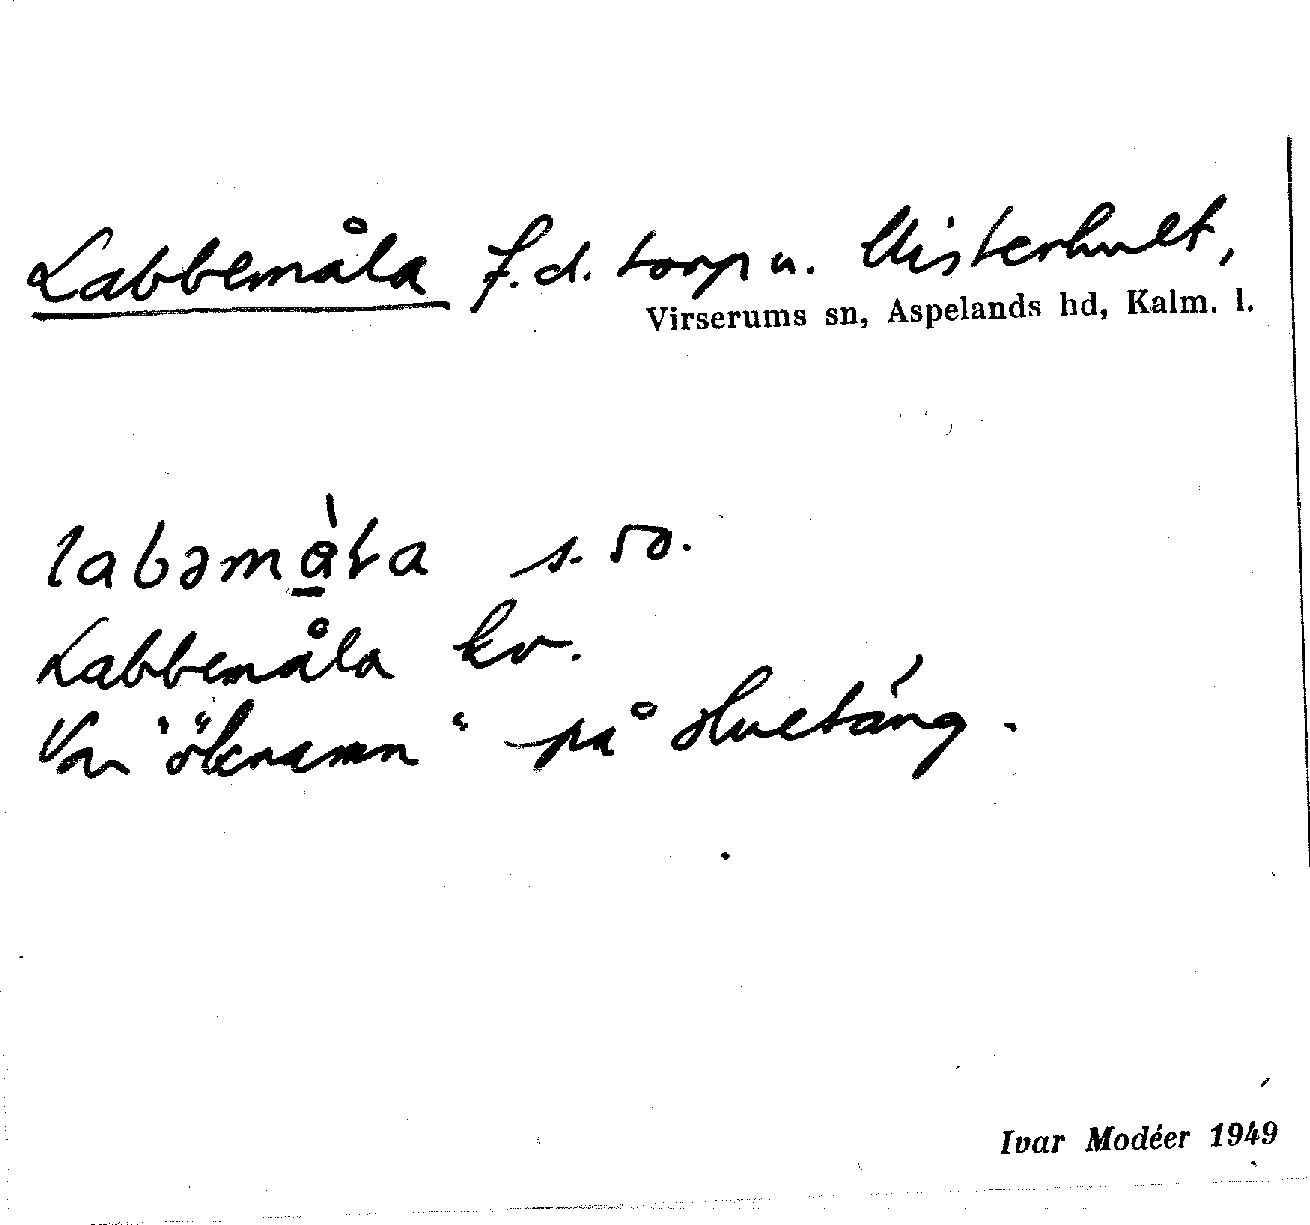 Labbemåla f.d. torp u. Misterhult,
Virserums sn, Aspelands hd, Kalm. l.
s. 50.
Labbemåla kv.
Var "öknamn" på
Ivar Modéer 1949